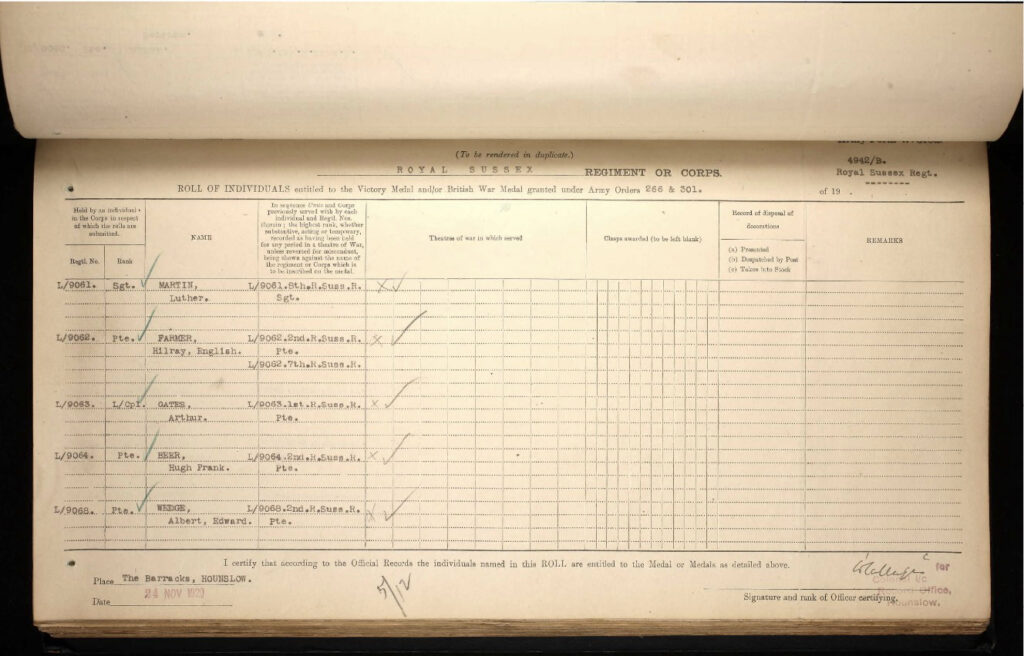 (To be rendered in duplicate.)
4942/B.
ROYAL SUSSEX REGIMENT OR CORPS.
Royal Sussex Regt.
ROLL OF INDIVIDUALS entitled to the Victory Medal and/or British War Medal granted under Army Orders 266 & 301.
of 19 .
Held by an individual
in the Corps in respect
of which the rolls are
submitted.
Regtl. No.
Rank
NAME
In sequence Units and Corps
previously served with by each
individual and Regtl. Nos.
therein; the highest rank, whether
substantive, acting or temporary,
recorded as having been held
for any period in a theatre of War,
unless reverted for misconduct,
being shown against the name of
the regiment or Corps which is
to be inscribed on the medal.
Theatres of war in which served
Clasps awarded (to be left blank)
Record of disposal of
decorations
(a) Presented
(b) Despatched by Post
(c) Taken into Stock
REMARKS
L/9061. Sgt. MARTIN, L/9061. R.Suss.R. x
Luther. Sgt.
L/9062. Pte. FARMER, L/9062.2nd.R.Suss.R. x
Hilray, English. Pte.
L/9062.7th.R.Suss.R.
L/9063. L/Cpl. GATES, L/9063.1st.R.Suss.R. x
Arthur. Pte.
L/9064. Pte. BEER, L/9064.2nd.R.Suss.R. x
Hugh Frank. Pte.
L/9068. Pte. WEDGE, L/9068.2nd.R.Suss.R. x
Albert, Edward. Pte.
I certify that according to the Official Records the individuals named in this ROLL are entitled to the Medal or Medals as detailed above.
Place The Barracks, HOUNSLOW.
for
Colonel i/c
Record Office,
Hounslow.
Date 24 NOV 1920
5/12
Signature and rank of Officer certifying.